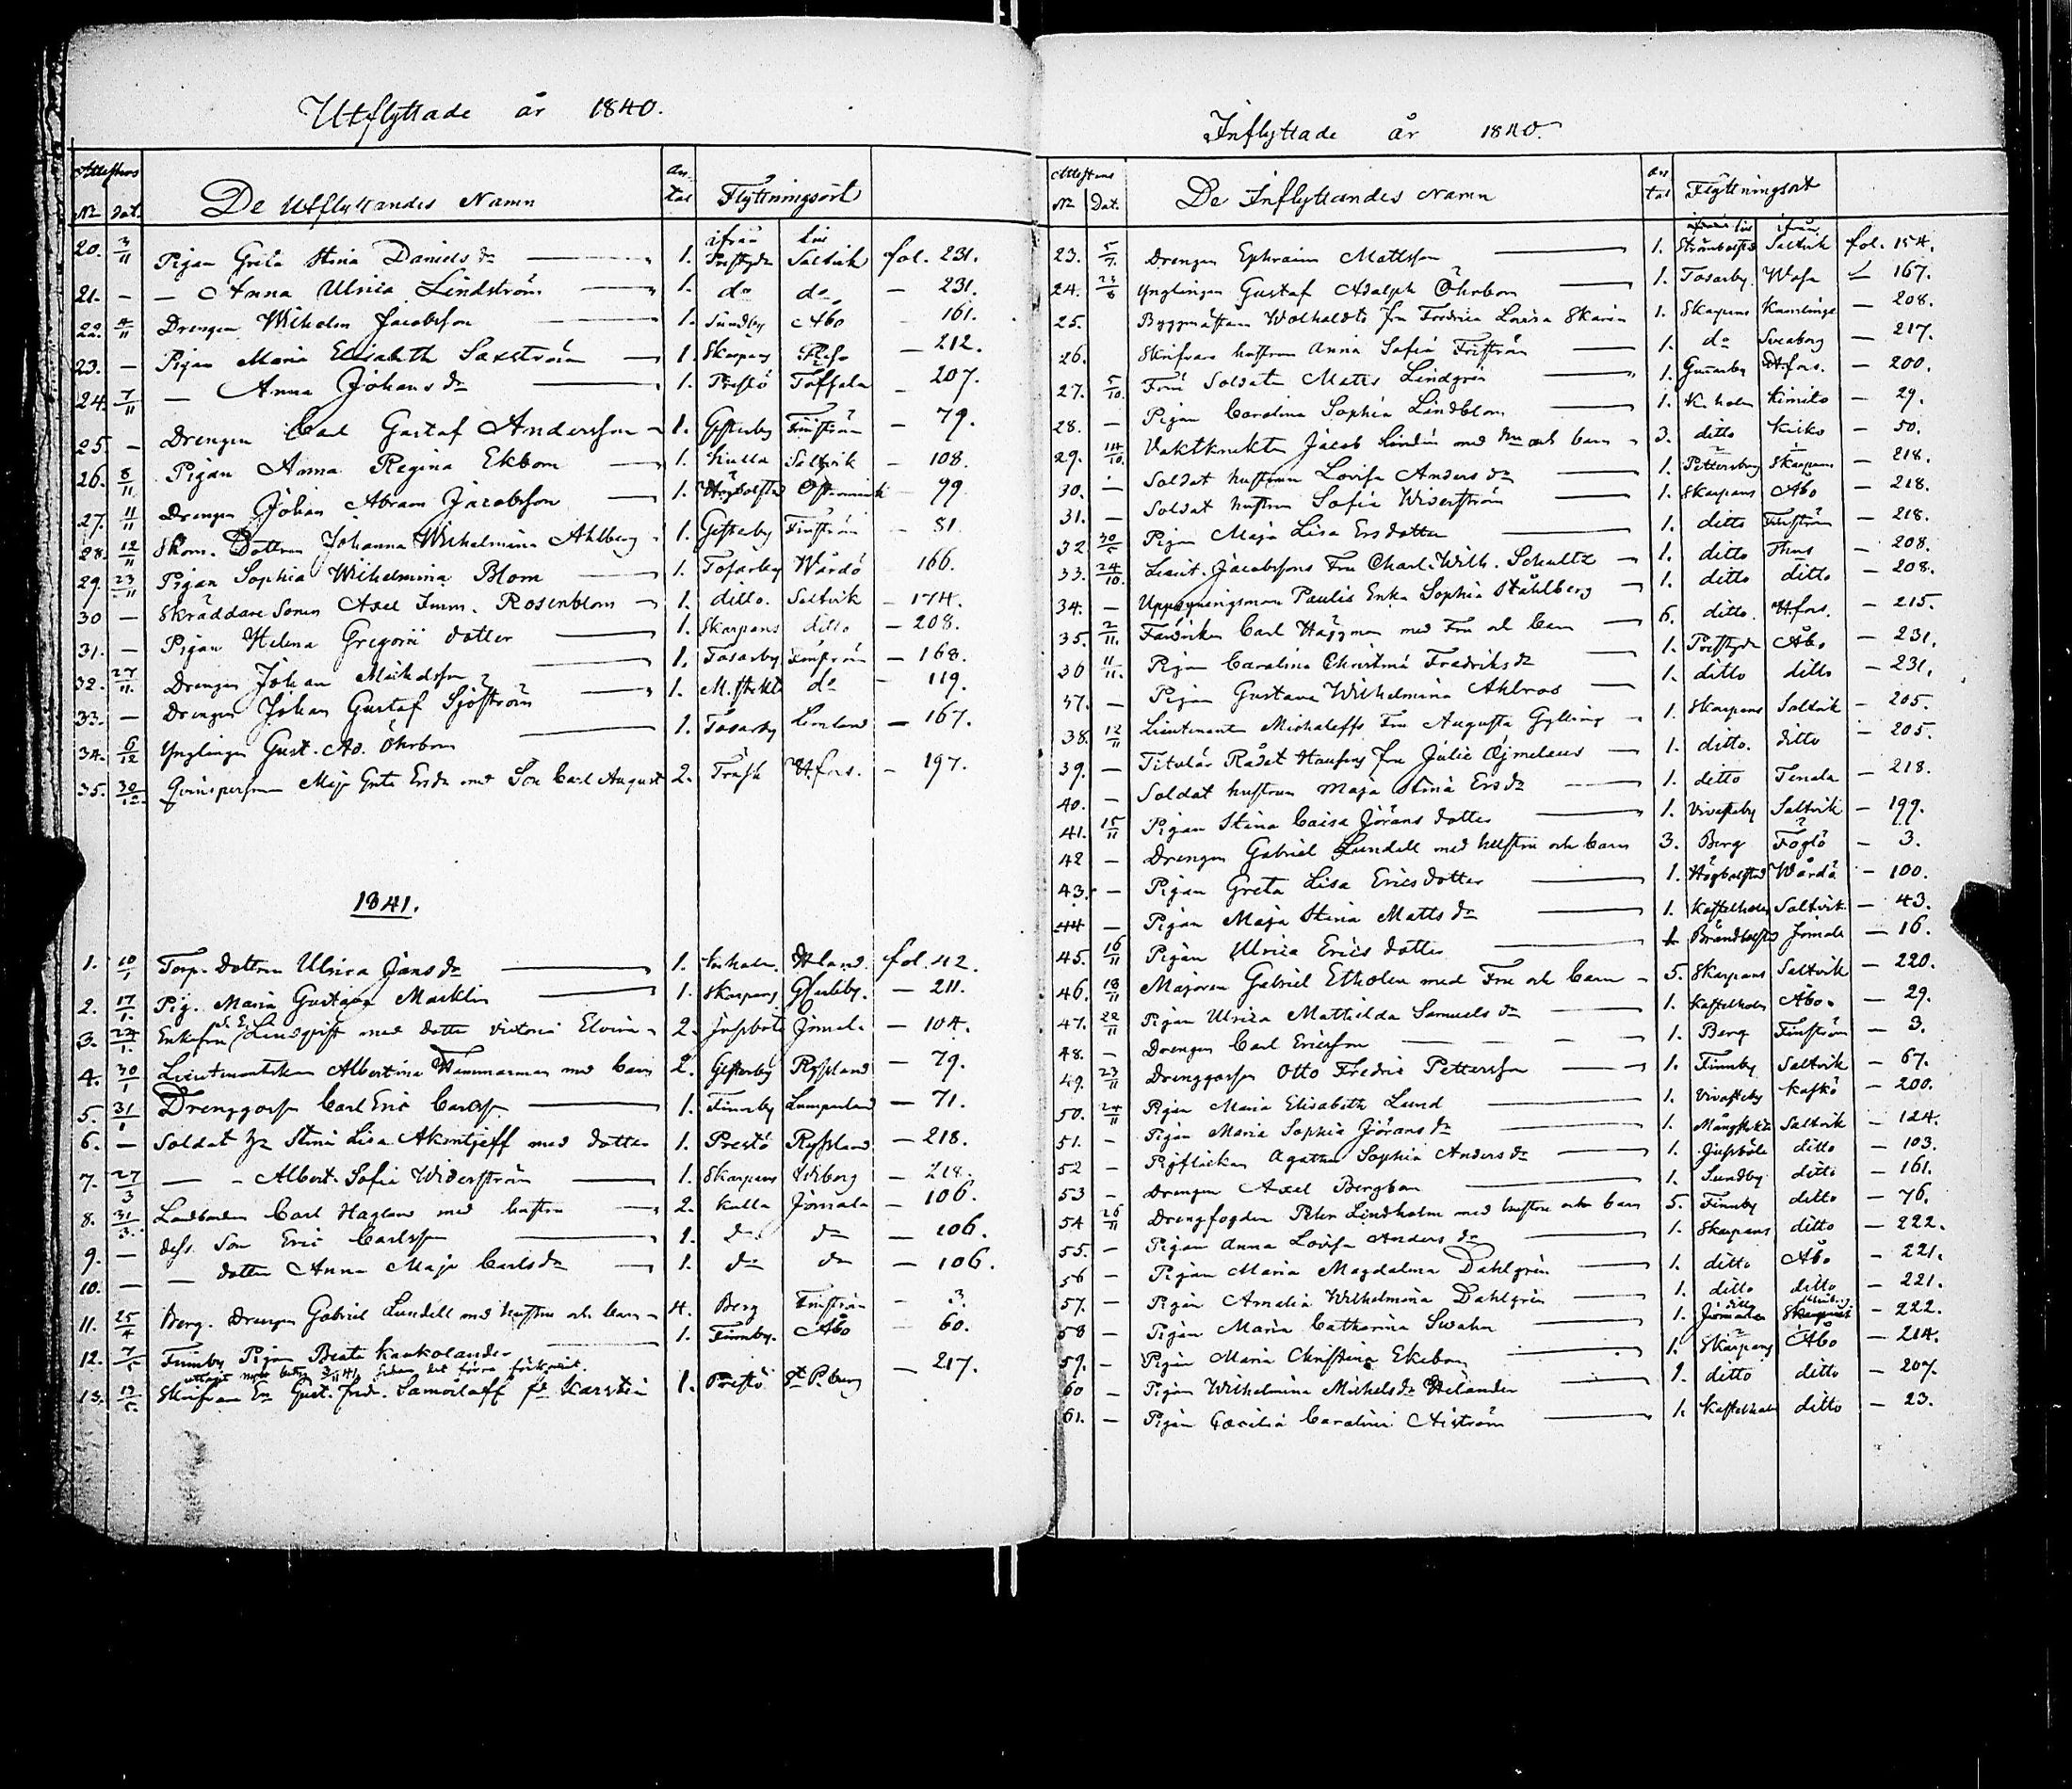 Utflyttade år 1840.
Attestens
No Dat. De Utflyttandes Namn Antal Flyttningsort
ifrån till
20. 3/11 Pigan Greta Stina Danielsdr 1. Prestgdn Saltvik fol. 231.
21. - - Anna Ulrica Lindström 1. do do - 231.
22. 4/11 Drengen Wilhelm Jacobsson 1. Sundby Åbo - 161.
23. - Pigan Maria Elisabeth Saxström 1. Skarpans - 212.
24. 7/11 - Anna Johansdr 1. Prestö Töffsala - 207.
25. - Drengen Carl Gustaf Andersson 1. Gesterby Finström - 79.
26. 8/11 Pigan Anna Regina Ekbom 1. Kulla Saltvik - 108.
27. 11/11 Drengen Johan Abram Jacobsson 1. Högbolstad - 99.
28. 12/11 Skom. Dottren Johanna Wilhelmina Ahlberg 1. Gesterby Finström - 81.
29. 23/11 Pigan Sophia Wilhelmina Blom 1. Tosarby Wårdö 166.
30 - Skräddare Sonen Axel Imm. Rosenblom 1. ditto. Saltvik - 174.
31. - Pigan Helena Gregorii dotter 1. Skarpans ditto - 208.
32. 27/11. Drengen Johan Michelsson 1. Tosarby Finström - 168.
33. - Drengen Johan Gustaf Sjöström 1. M. stekta do - 119.
34. 6/12 Ynglingen Gust. Ad. Öhrbom 1. Tosarby Lemland - 167.
35. 30/12. Qvinsperson Maja Greta Ersdr med Son Carl August 2. Träsk Hfors. - 197.
1841.
1. 10/1 Torp. dottren Ulrica Jansdr 1. fol. 42.
2. 17/1. Pig. Maria Gustava Marklin 1. Skarpans GCarleby. - 211.
3. 24/1. Enkefru Lindqvist med dotter Victoria Elvira 2. Jussböle Jomala - 104.
4. 30/1 Lieutenantskan Albertina Wammarman med barn 2. Gesterby Ryssland - 79.
5. 31/1 Drenggossen Carl Eric Carlss. 1. Finnby Lumparland - 71.
6. - Soldat hr Stina Lisa Aksentjeff med dotter 1. Prestö Ryssland - 218.
7. 27/3 - - Albert. Sofia Widerström 1. Skarpans Wiborg - 218.
8. 31/3. Landbonden Carl Haglund med hustru 2. Kulla Jomala - 106.
9. - dess Son Eric Carlsson 1. do do - 106.
10. - - dotter Anna Maja Carlsdr 1. do do - 106.
11. 25/4 Berg. Drengen Gabriel Lundell med hustru och barn 4. Berg Finström - 3.
12. 7/5 Finnby Pigan Beata Kaukolander 1. Finnby. Åbo - 60.
uttagit nytt betyg 3/11 41, sedan det förra förkommit.
13. 13/5. Skrifvare En Gust. Fred. Samoiloff fd Karstén 1. Prestö St P.burg - 217.
Inflyttade år 1840.
Attestens
No Dat. De Inflyttandes Namn Antal Flyttningsort
till ifrån
23. 5/7. Drengen Ephraim Mattsson 1. Strömbolstad Saltvik fol. 154.
24. 23/8 Ynglingen Gustaf Adolph Öhrbom 1. Tosarby Wasa - 167.
25. Byggmästaren Wolhaldts fru Fredrica Lovisa Skarin 1. Skarpans Kumlinge - 208.
26. Skrifvare hustrun Anna Sofia Friström 1. do Sveaborg - 217.
27. 5/10. Förre Soldaten Matts Lindgren 1. Gunnarby Hfors. - 200.
28. - Pigan Carolina Sophia Lindblom 1. K. holm Kimito - 29.
29. 14/10. Vaktknekten Jacob Lindén med hu och barn 3. ditto - 50.
30. - Soldat hustrun Lovisa Andersdr 1. Pettersburg Skarpans - 218.
31. - Soldat hustrun Sofia Widerström 1. Skarpans Åbo - 218.
32 30/5 Pigan Maja Lisa Ersdotter 1. ditto Finström - 218.
33. 24/10. Lieut. Jacobssons Fru Charl. Wilh. Schultz 1. ditto - 208.
34. - Uppsyningsman Paulis Enka Sophia Ståhlberg 1. ditto ditto - 208.
35. 2/11. Fändriken Carl Häggman med Fru och barn 6. ditto. Hfors. - 215.
36 11/11. Pigan Carolina Christina Fredriksdr 1. Prestgdn Åbo - 231.
37. - Pigan Gustava Wilhelmina Ahlroos 1. ditto ditto - 231.
38. 12/11 Lieutenanten Michaleffs Fru Augusta Gylling 1. Skarpans Saltvik - 205.
39. - Titulär Rådet Hausens fru Julie Öjmelaeus 1. ditto. ditto - 205.
40. - Soldat hustrun Maja Stina Ersdr 1. ditto Tenala - 218.
41. 15/11 Pigan Stina Caisa Jörans dotter 1. Vivasteby Saltvik - 199.
42 - Drengen Gabriel Lundell med hustru och barn 3. Berg Föglö - 3.
43. - Pigan Greta Lisa Ericsdotter 1. Högbolstad Wårdö - 100.
44 - Pigan Maja Stina Mattsdr 1. Kastelholm Saltvik - 43.
45. 16/11 Pigan Ulrica Erics dotter 1. Brändbolstad Jomala - 16.
46. 18/11 Majoren Gabriel Etholén med Fru och barn 5. Skarpans Saltvik - 220.
47. 22/11 Pigan Ulrica Mathilda Samuelsdr 1. Kastelholm Åbo - 29.
48. - Drengen Carl Ericsson 1. Berg Finström - 3.
49. 23/11 Drenggossen Otto Fredric Pettersson 1. Finnby Saltvik - 67.
50. 24/11 Pigan Maria Elisabeth Lund 1. Vivasteby Kaskö - 200.
51. - Pigan Maria Sophia Jöransdr 1. Mångstekta Saltvik - 124.
52 - Pigflickan Agatha Sophia Andersdr 1. Jussböle ditto - 103.
53 - Drengen Axel Bergbom 1. Sundby ditto - 161.
54 26/11 Drengfogden Peter Lindholm med hustru och barn 5. Finnby ditto - 76.
55. - Pigan Anna Lovisa Andersdr 1. Skarpans ditto - 222.
56 - Pigan Maria Magdalena Dahlgrén 1. ditto Åbo - 221.
57. - Pigan Amalia Wilhelmina Dahlgrén 1. ditto ditto - 221.
58 - Pigan Maria Catharina Swahn 1. ditto - 222.
59. - Pigan Maria Christina Ekebom 1. Skarpans Åbo - 214.
60 - Pigan Wilhelmina Michelsdr Helander 1. ditto ditto - 207.
61. - Pigan Cæcilia Carolina Åiström 1. Kastelholm ditto - 23.